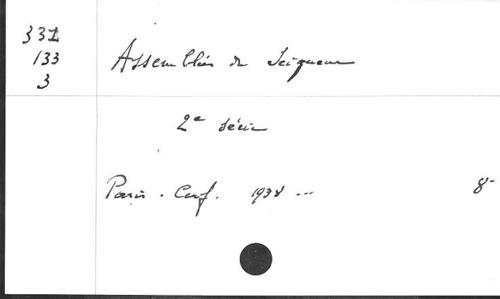 331
133
3
Assemblées du Seigneur
2e série
Paris. Cerf. 1938 ...
8-